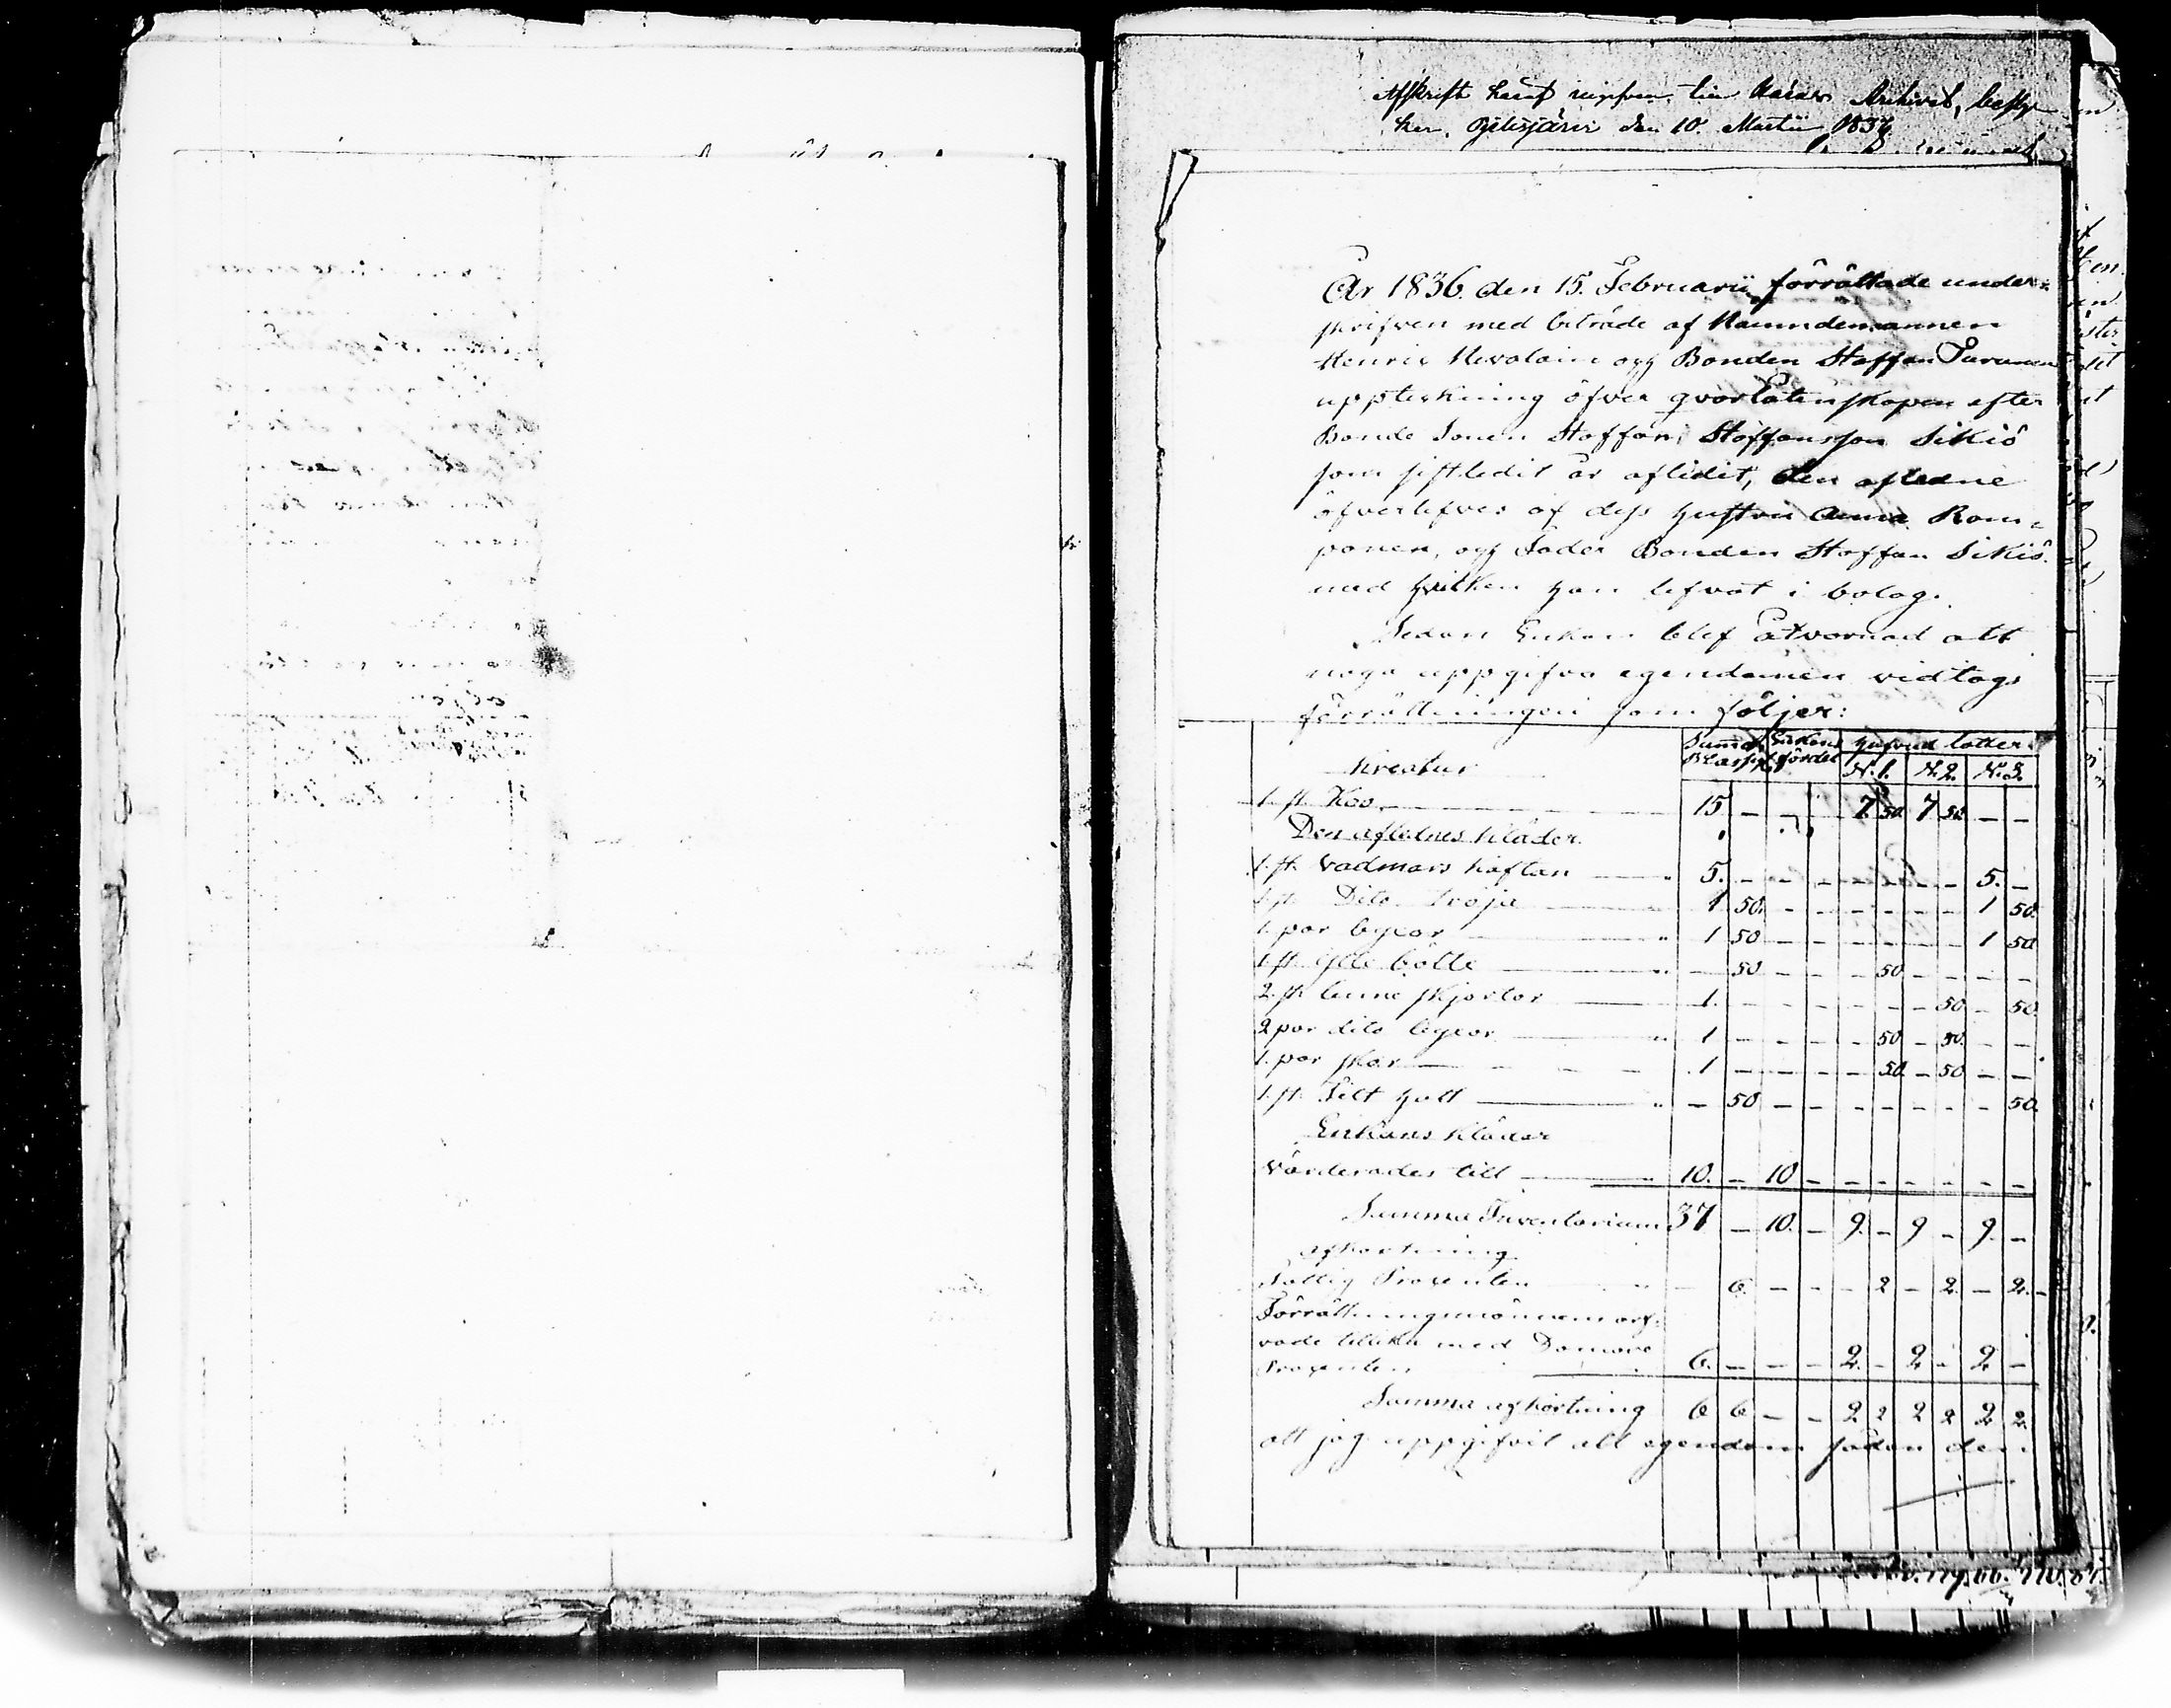 Afskrift häraf Archivet,
den 10. Martii 1836.
År 1836. den 15. Februarii förrättade under-
skrifven med biträde af Nämndemannen
Henric Nevolain och Bonden Staffan Turunen
uppteckning öfver qvarlåtenskapen efter
Bonde Sonen Staffan Staffansson Sikiö
som sistledit år aflidit, den aflidne
öfverlefves af dess hustru Anna Rom-
ponen, och Fader Bonden Staffan Sikiö.
med hvilken han lefvat i bolag.
Sedan Enkan blef åtvarnad att
noga uppgifva egendomen vidtogs
förrättningen som följer:
Kreatur Summa B:Assig: Enkans fördel Hufvud lotter. N. 1. N. 2. N. 3.
1. st. Koo 15 – – – 7 50 7 50 – –
Den aflidnes kläder.
1. st. vadmars kaftan 5. – – – – – – – 5. –
1. st. Dito tröja 1 50. – – – – – – 1 50.
1. par byxor 1 50 – – – – – – 1 50
1. st. ylle bälte – 50 – – – 50 – – – –
2. st. linne skjortor 1. – – – – – – 50 – 50.
2 par dito byxor 1 – – – – 50 – 50. – –
1. par skor 1 – – – – 50 – 50 – –
1. st. Filt hatt – 50 – – – – – – – 50.
Enkans kläder
värderades till 10. – 10 – – – – – – –
Summa Inventarium 37 – 10. – 9. – 9 – 9. –
afkortning
Fattig Procenten – 6. – – – 2 – 2. – 2. –
Förrättningsmännern arf-
vode tillika med Domare
Procenten 6. – – – 2. – 2 – 2 –
Summa afkortning 6 6 – – 2 2 2 2 2 2
att jag uppgifvit all egendom sådan den